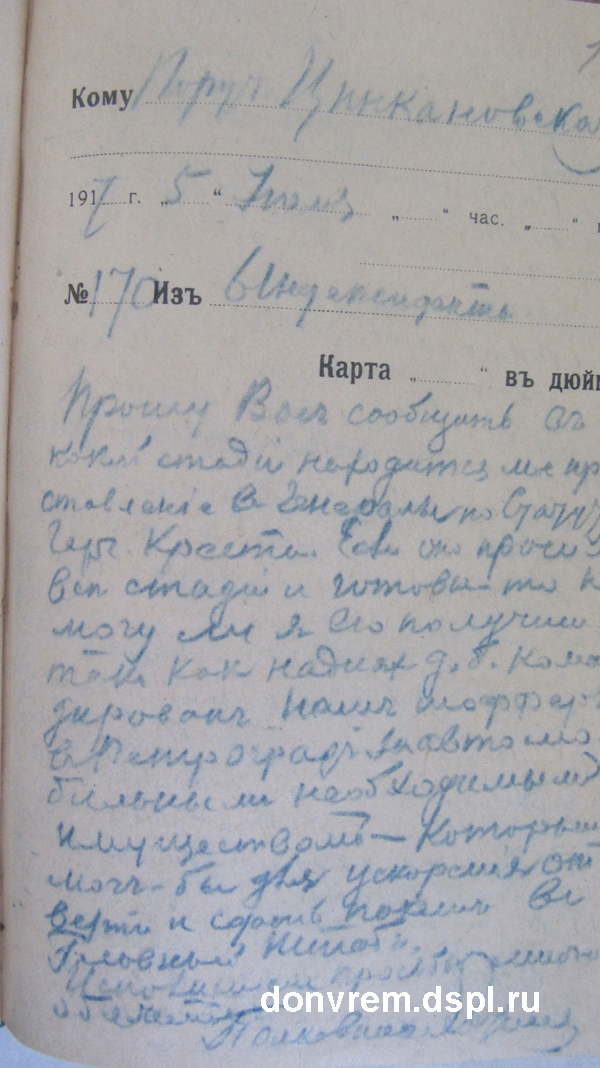 Кому Поруч Цинкановска
1917 г. „5“ Іюля „ “ час. „ “
№ 170 Изъ
Карта „ “ въ дюйм
Прошу Васъ сообщить въ
какой стадіи находится мое пр
ставленіе въ Генералы по Стату
Геор. Креста. Если оно прошло
все стадіи и готово то
могу ли я его получить
такъ какъ надняхъ д. б. коман
дированъ нашъ шофферъ
въ Петроградъ за автомо
бильными необходимым
имуществомъ — который
могъ-бы для ускоренія от
везти и сдать пакетъ въ
Главный Штабъ.
просьбы
обяжете
Полковникъ
donvrem.dspl.ru